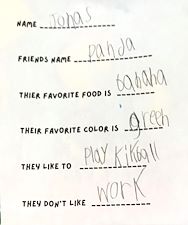 NAME Jonas
FRIENDS NAME panda
THIER FAVORITE FOOD IS banana
THEIR FAVORITE COLOR IS green
THEY LIKE TO Play Kikball
THEY DON'T LIKE work